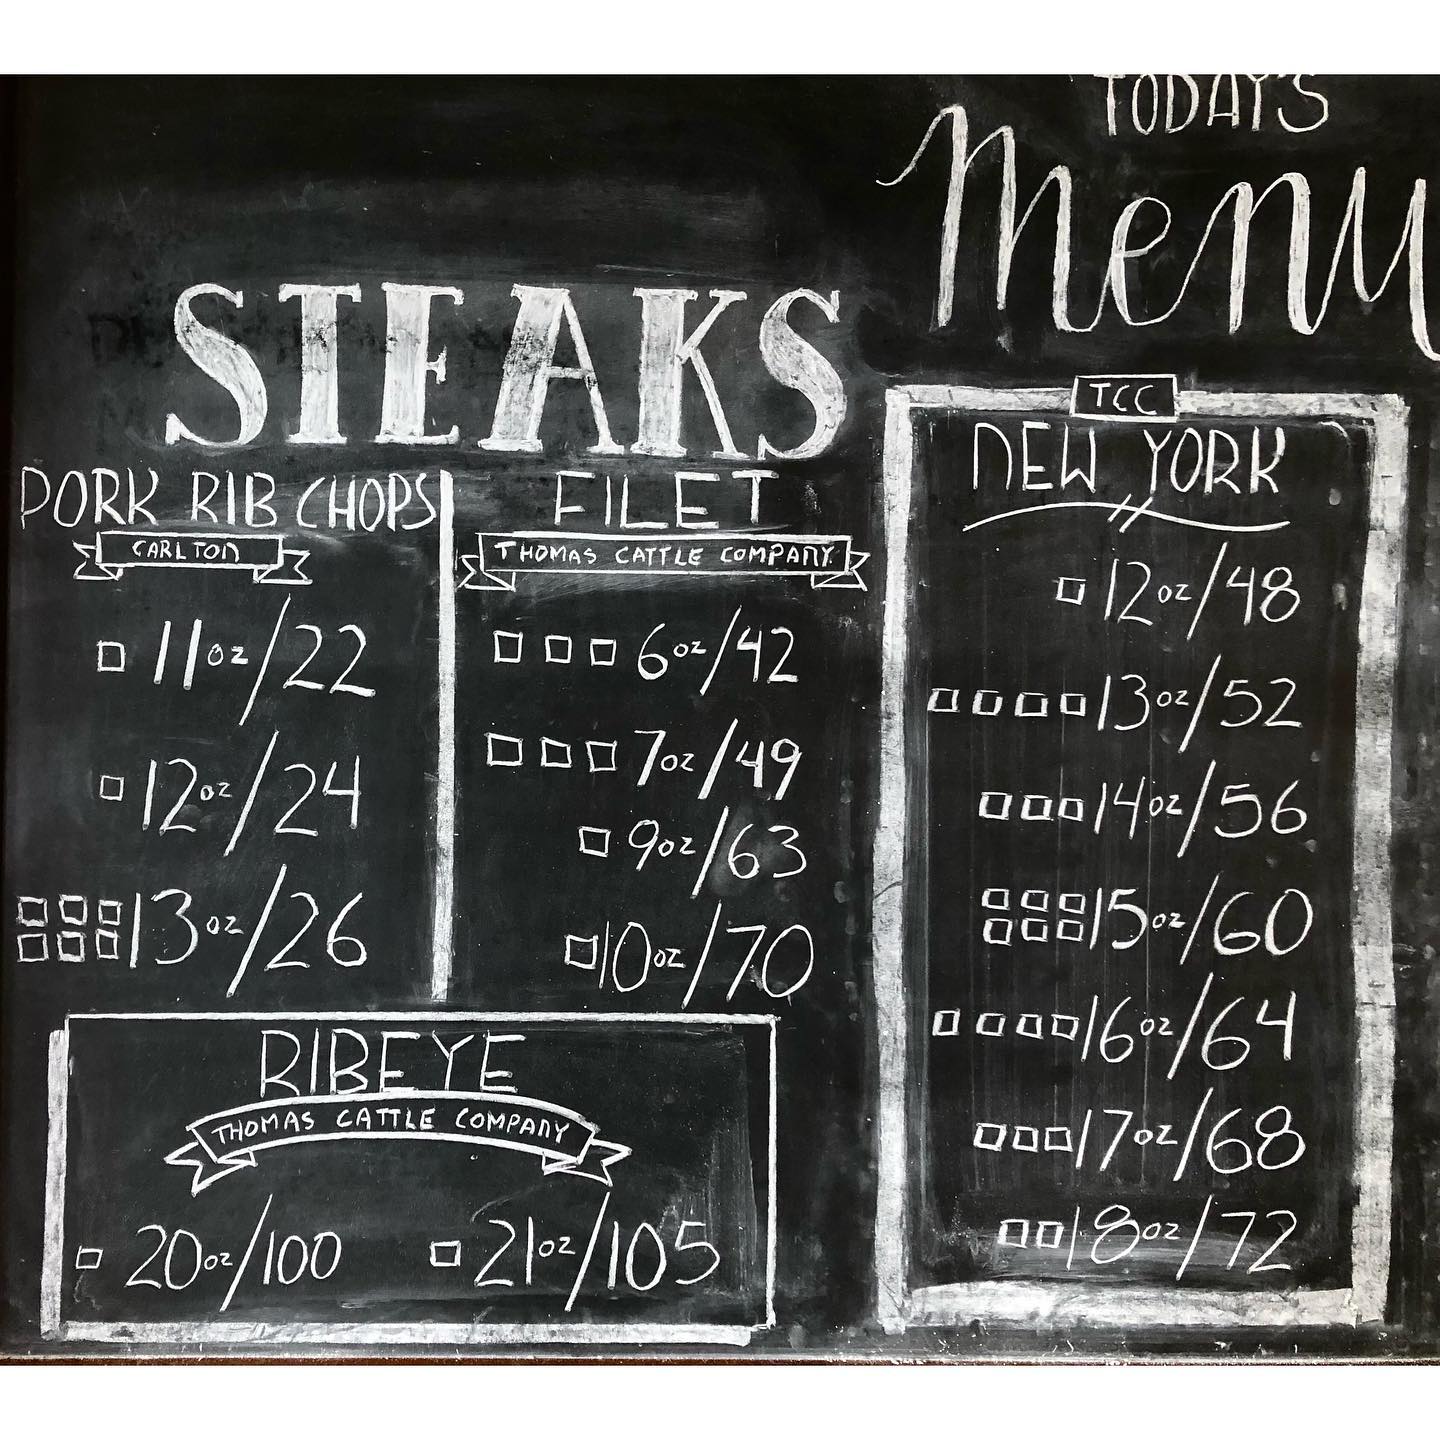 TODAY'S
Menu
STEAKS
PORK RIB CHOPS
CARLTON
11oz/22
12oz/24
13oz/26
FILET
THOMAS CATTLE COMPANY
6oz/42
7oz/49
9oz/63
10oz/70
RIBEYE
THOMAS CATTLE COMPANY
20oz/100 21oz/105
TCC
NEW YORK
12oz/48
13oz/52
14oz/56
15oz/60
16oz/64
17oz/68
18oz/72